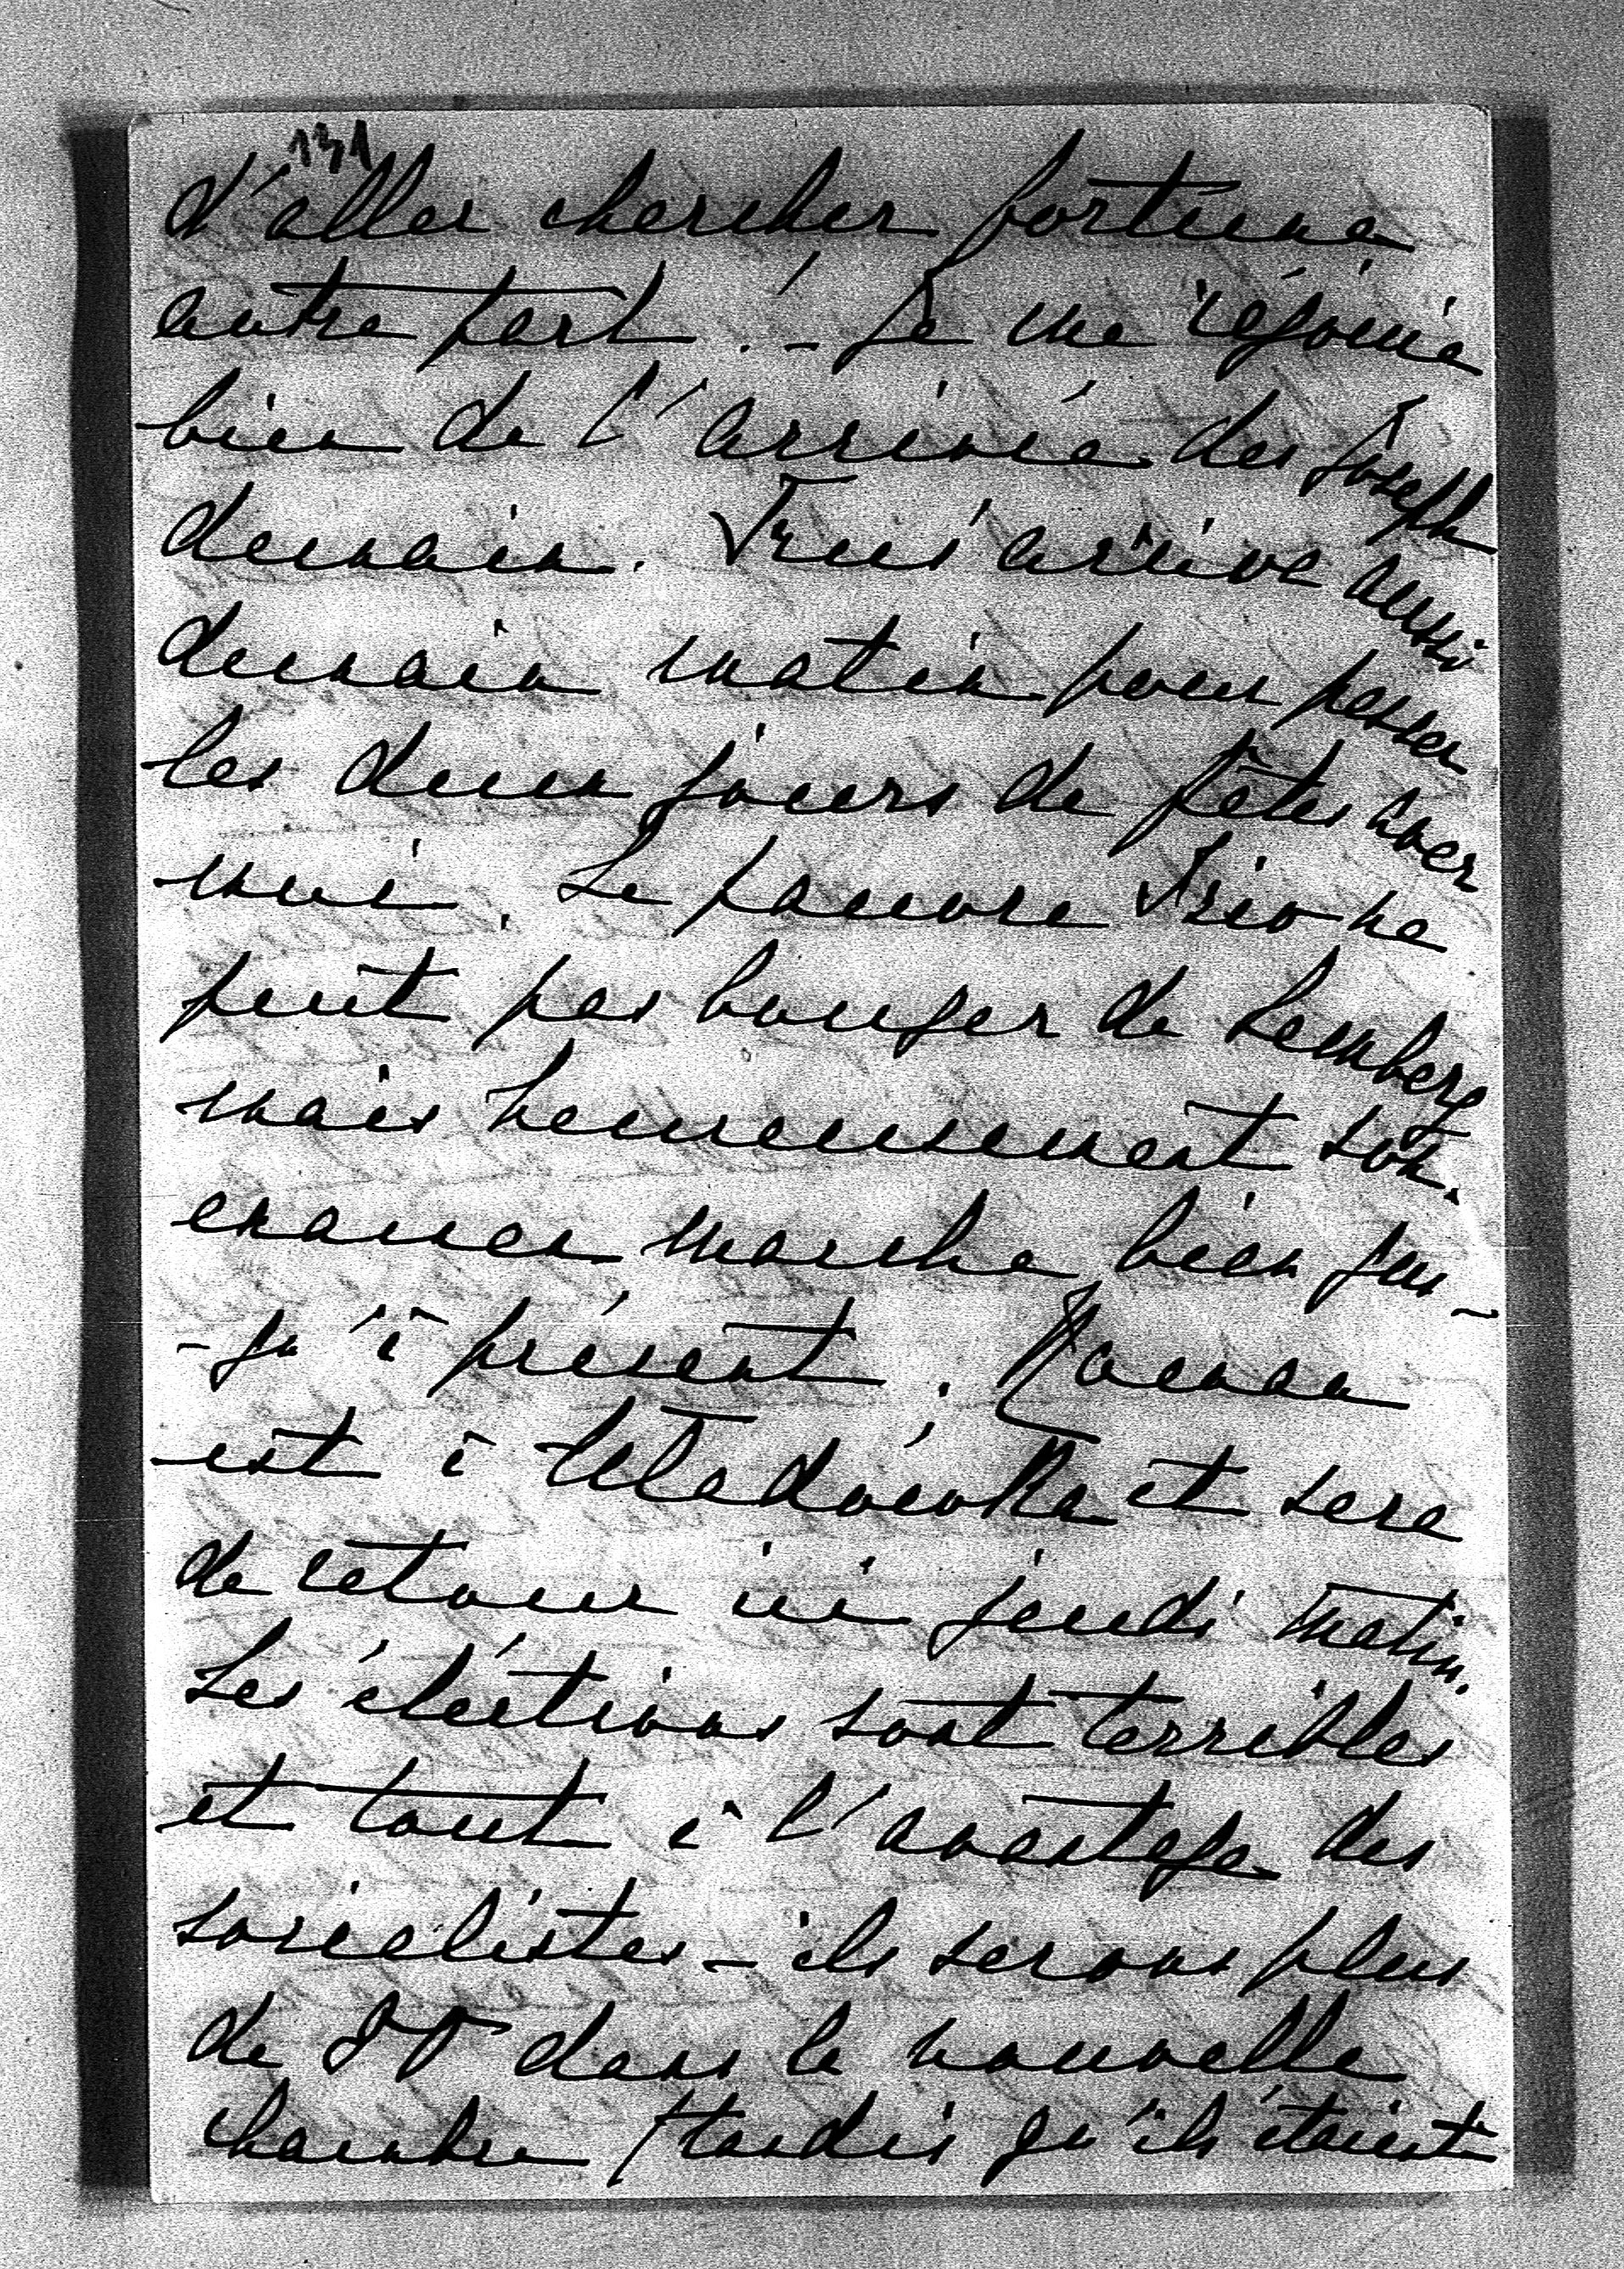 131
d'aller chercher fortune
autre part. – Je me réjouis
bien de l'arrivée des Joseph
demain. arrive aussi
demain matin pour passer
les deux jours de fêtes avec
moi. Le pauvre ne
peut pas bouger de Lemberg
mais heureusement son
examen marche bien jus-
-qu'à présent. Maman
est à et sera
de retour ici jeudi matin.
Les élections sont terribles
et tout à l'avantage des
socialistes – ils serons plus
de dans la nouvelle
chambre tandis qu'ils étaient